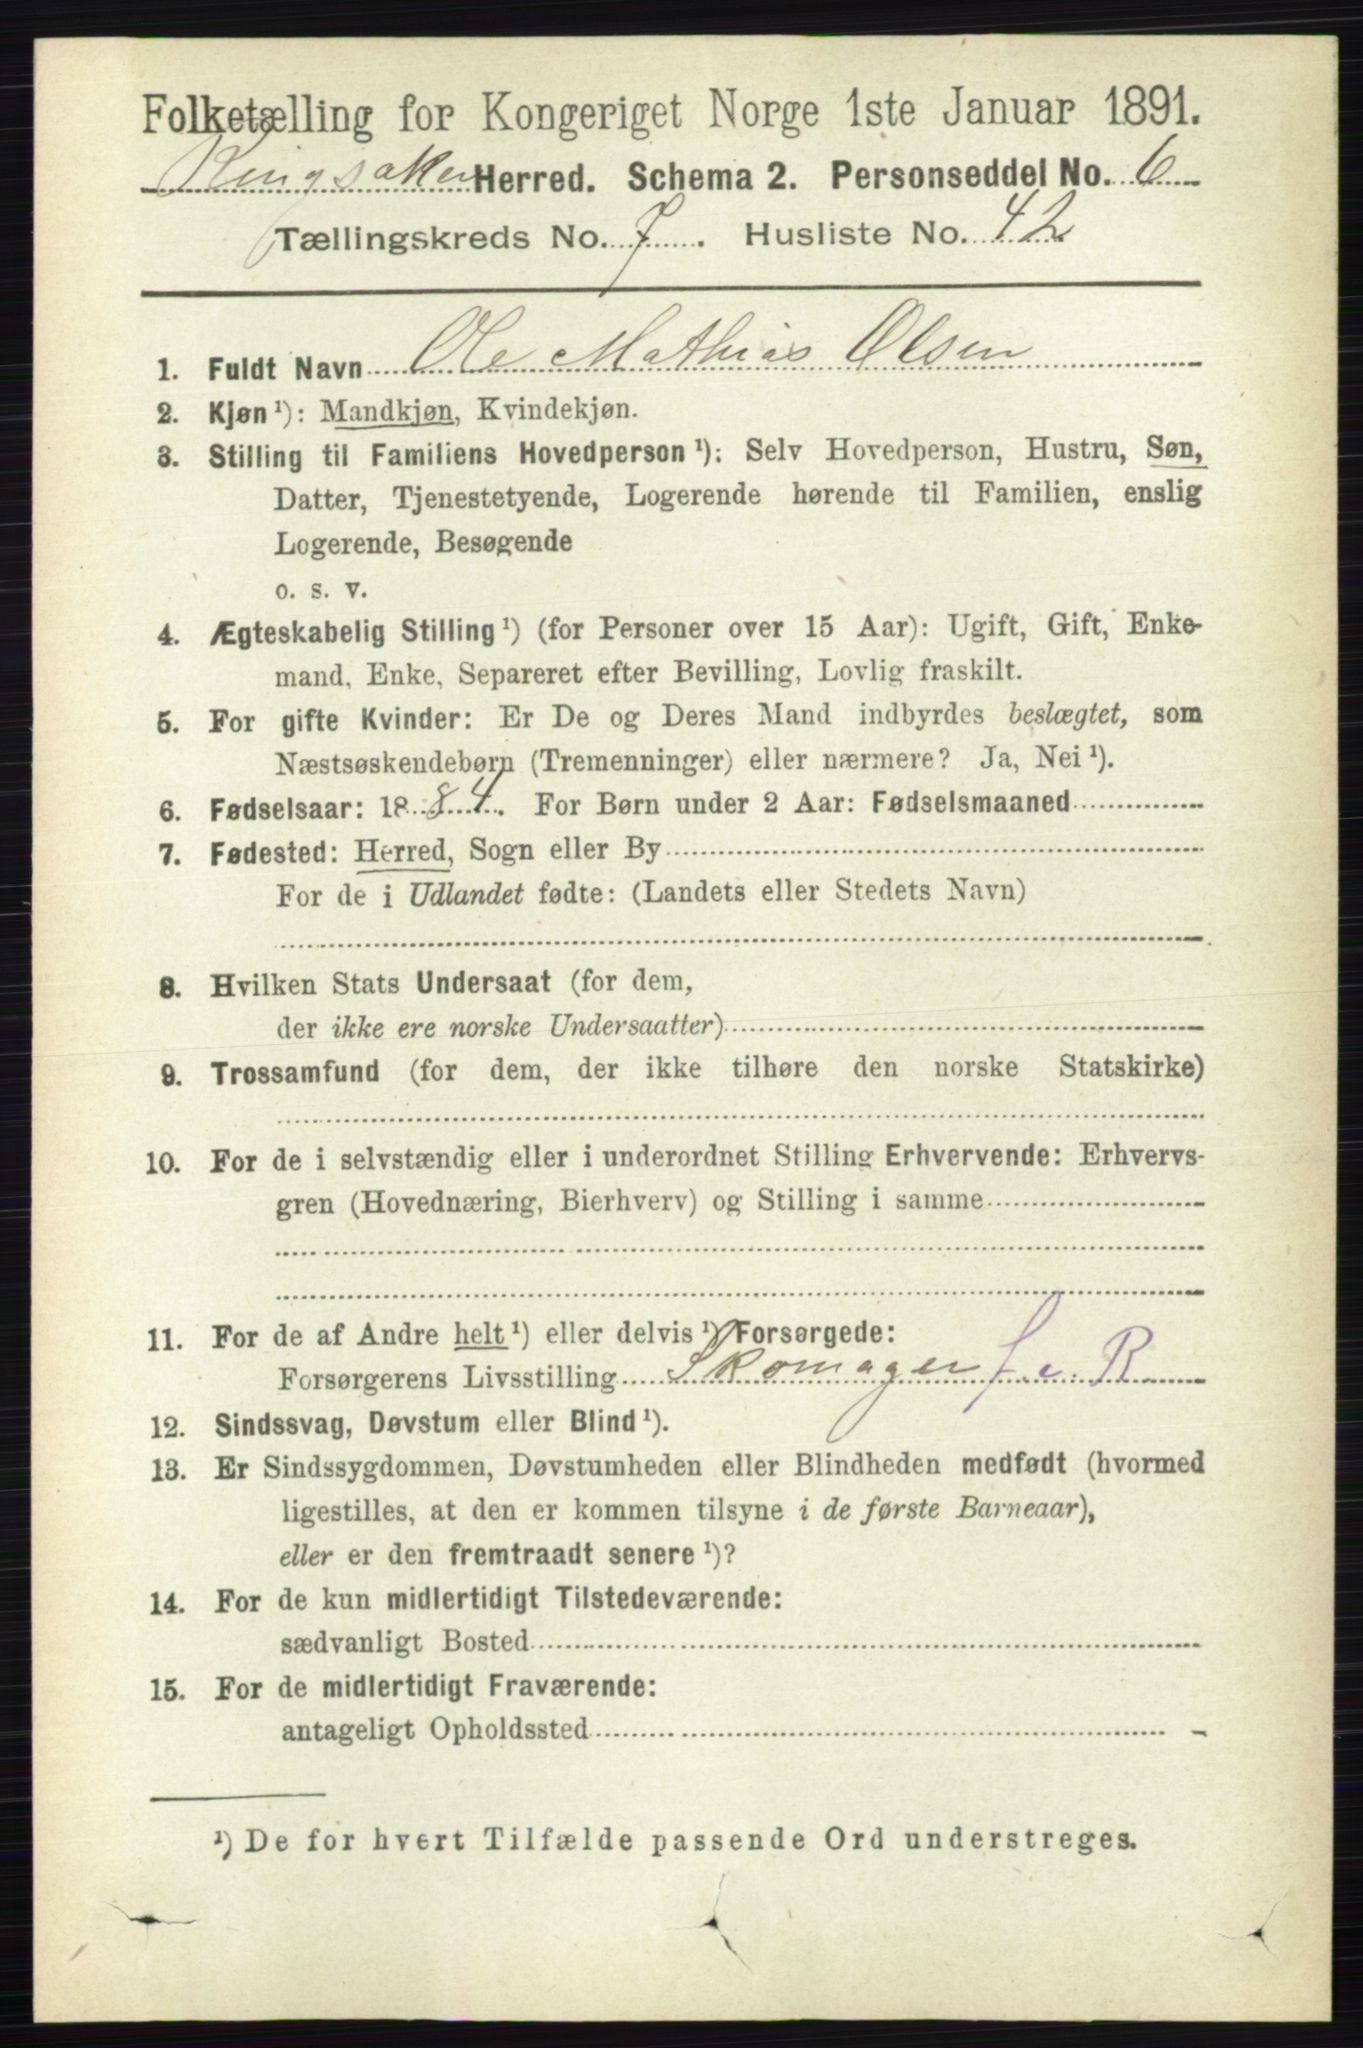 Folketælling for Kongeriget Norge 1ste Januar 1891.
Ringsaker Herred. Schema 2. Personseddel No. 6
Tællingskreds No. 7. Husliste No. 42
1. Fuldt Navn Ole Mathias Olsen
2. Kjøn ¹): Mandkjøn, Kvindekjøn.
3. Stilling til Familiens Hovedperson ¹): Selv Hovedperson, Hustru, Søn,
Datter, Tjenestetyende, Logerende hørende til Familien, enslig
Logerende, Besøgende
o. s. v.
4. Ægteskabelig Stilling ¹) (for Personer over 15 Aar): Ugift, Gift, Enke-
mand, Enke, Separeret efter Bevilling, Lovlig fraskilt.
5. For gifte Kvinder: Er De og Deres Mand indbyrdes beslægtet, som
Næstsøskendebørn (Tremenninger) eller nærmere? Ja, Nei ¹).
6. Fødselsaar: 1884. For Børn under 2 Aar: Fødselsmaaned
7. Fødested: Herred, Sogn eller By
For de i Udlandet fødte: (Landets eller Stedets Navn)
8. Hvilken Stats Undersaat (for dem,
der ikke ere norske Undersaatter)
9. Trossamfund (for dem, der ikke tilhøre den norske Statskirke)
10. For de i selvstændig eller i underordnet Stilling Erhvervende: Erhvervs-
gren (Hovednæring, Bierhverv) og Stilling i samme
11. For de af Andre helt ¹) eller delvis ¹) Forsørgede:
Forsørgerens Livsstilling Skomager f. e. R.
12. Sindssvag, Døvstum eller Blind ¹).
13. Er Sindssygdommen, Døvstumheden eller Blindheden medfødt (hvormed
ligestilles, at den er kommen tilsyne i de første Barneaar),
eller er den fremtraadt senere ¹)?
14. For de kun midlertidigt Tilstedeværende:
sædvanligt Bosted
15. For de midlertidigt Fraværende:
antageligt Opholdssted
¹) De for hvert Tilfælde passende Ord understreges.